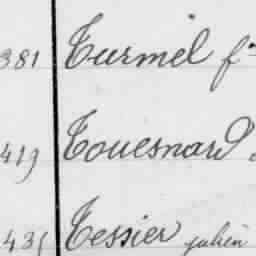 381 Turmel f
419 Touesnard
435 Tessier julien